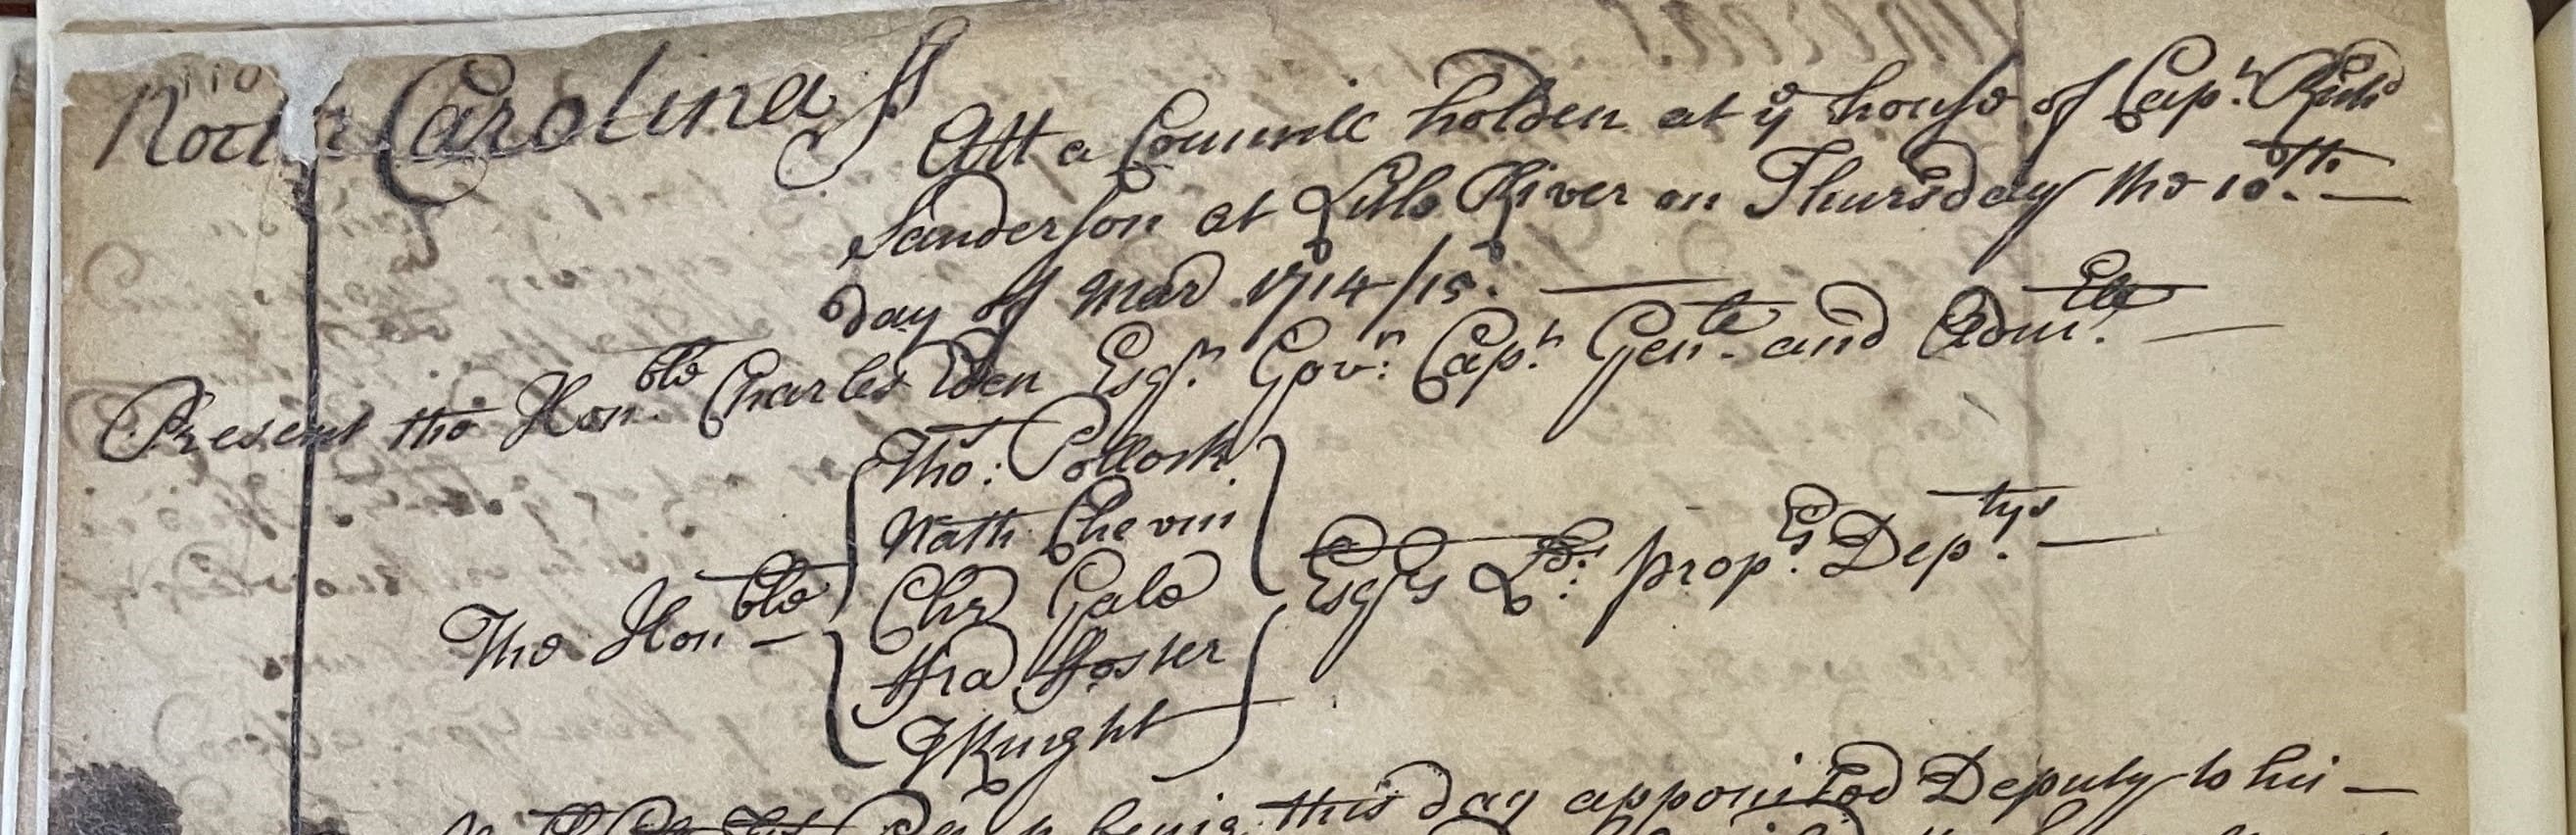 North Carolina ss
Att a Councill holden at ye house of Capt. Richd
Sanderson at Litle River on Thursday the 10th.
day of Mar 1714/15.
Present the Honble Charles Eden Esqr. Govr. Capt. Genle. and Admll.
Tho: Pollock
Nath Chevin
The Honble Chr Gale Esqrs Lds. prop.rs Deptys.
ffra ffoster
T Knight
being this day appointed Deputy to his